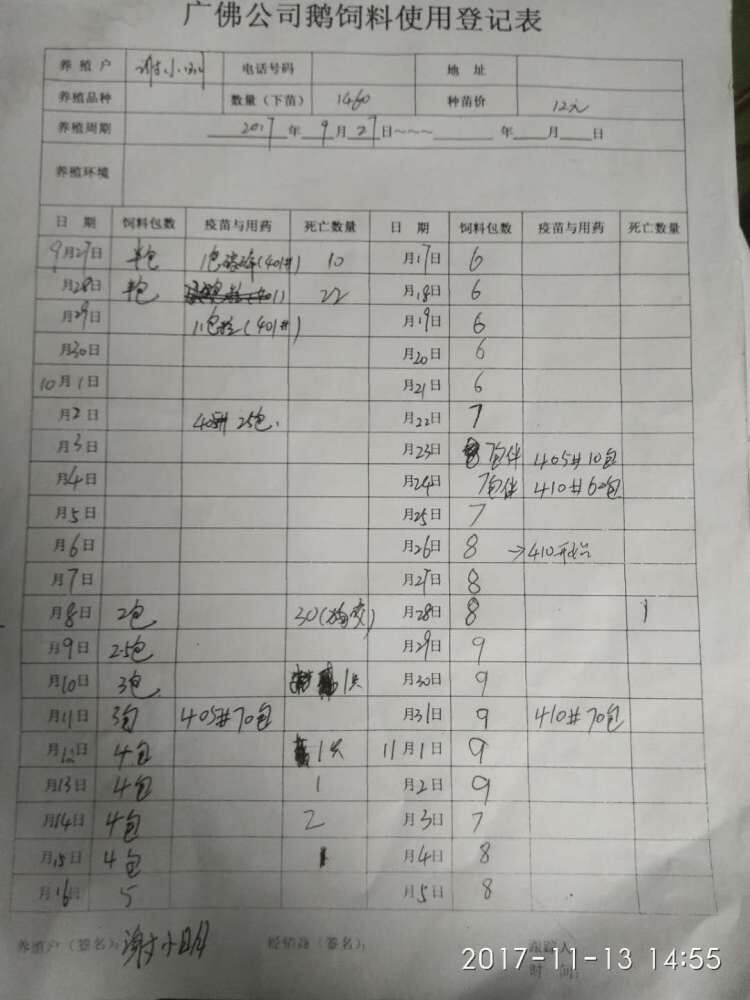 广佛公司鹅饲料使用登记表
养殖户 谢小明 电话号码 地 址
养殖品种 数量(下苗) 1460 种苗价 12元
养殖周期 2017年9月27日~~~ 年 月 日
养殖环境
日 期 饲料包数 疫苗与用药 死亡数量 日 期 饲料包数 疫苗与用药 死亡数量
9月27日 半包 1包 (401#) 10 月17日 6
月28日 半包 22 月18日 6
月29日 11包 (401#) 月19日 6
月30日 月20日 6
10月1日 月21日 6
月2日 405# 25包. 月22日 7
月3日 月23日 7包伴 405#10包
月4日 月24日 7包伴 410#60包
月5日 月25日 7
月6日 月26日 8 →410开始
月7日 月27日 8
月8日 2包 30 月28日 8 1
月9日 2.5包 月29日 9
月10日 3包 1只 月30日 9
月11日 3包 405#70包 月31日 9 410#70包
月12日 4包 1只 11月1日 9
月13日 4包 1 月2日 9
月14日 4包 2 月3日 7
月15日 4包 1 月4日 8
月16日 5 月5日 8
养殖户(签名): 谢小明 经销商(签名): 跟踪人
时 间:
2017-11-13 14:55